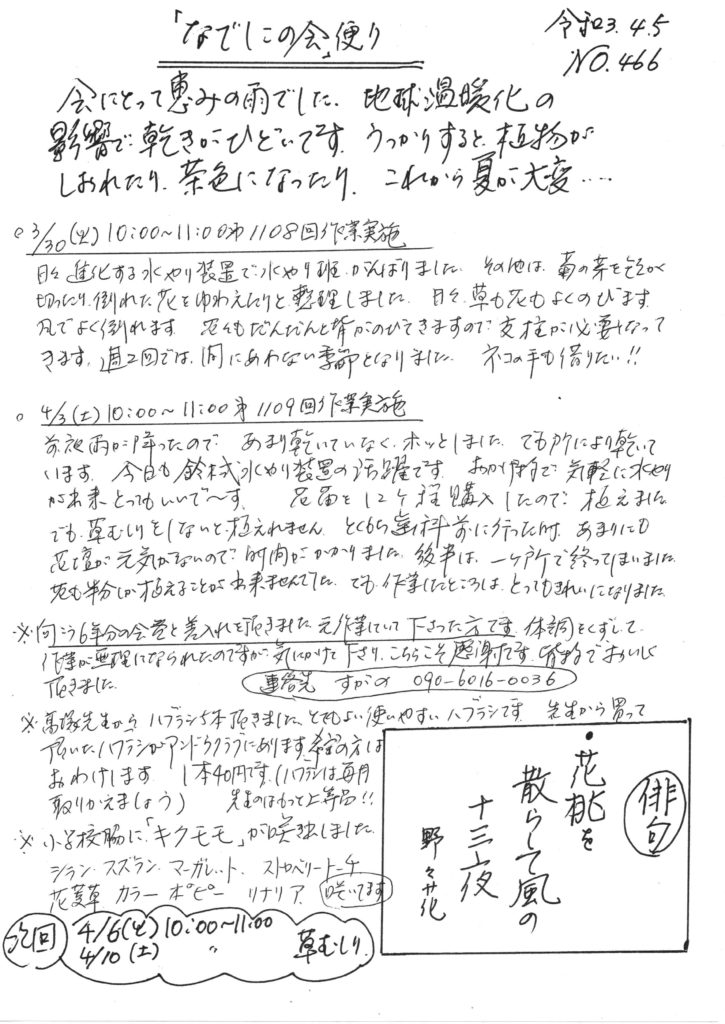 「なでしこの会」便り
令和3.4.5
NO.466
会にとって恵みの雨でした. 地球温暖化の
影響で乾きがひどいです. うっかりすると, 植物が
しおれたり, 茶色になったり. これから夏が大変....
○3/30(火)10:00~11:00第1108回作業実施
日々進化する水やり装置で水やり班, がんばりました. その他は, 菊の芽を
切ったり, 倒れた花をゆわえたりと整理しました. 日々, 草も花もよくのびます.
風でよく倒れます 花々もだんだんと背がのびてきますので支柱が必要となって
きます. 週2回では, 間にあわない季節となりました. ネコの手も借りたい!!
○ 4/3(土)10:00~11:00第1109回作業実施
前夜雨が降ったので あまり乾いていなく, ホッとしました. でも所により乾いて
います. 今日も鈴木式水やり装置の活躍です. おかげ様で気軽に水やり
が出来, とってもいいで~す. 花苗を12ヶ程購入したので 植えました
でも, 草むしりをしないと植えれません. とくもち歯科前に行った所, あまりにも
花壇が元気がないので時間がかかりました. 後半は, 一ヶ所で終ってしまいました.
花も半分しか植えることが出来ませんでした. でも作業したところは, とってもきれいになりました.
※向こう6年分の会費と差入れを頂きました. 元作業していて下さった方です. 体調をくずして,
作業が無理になられたのですが, 気にかけて下さり, こちらこそ感謝です. 皆様でおいしく
頂きました.
連絡先 すがの 090-6016-0036
※高塚先生から ハブラシ5本頂きました. とてもよい使いやすいハブラシです. 先生から買って
頂いたハブラシがアンドウクラブにあります. 希望の方は
おわけします 1本40円です. (ハブラシは毎月
取りかえましょう) 先生のはもっと上等品!!
※小学校脇に「キクモモ」が咲き出しました.
シラン. スズラン. マーガレット. ストロベリートーチ
花菱草 カラー ポピー リナリア. 咲いてます
次回
4/6(火)10:00~11:00
4/10(土) 〃 草むしり
俳句
・花桃を
散らして風の
十三夜
野々花